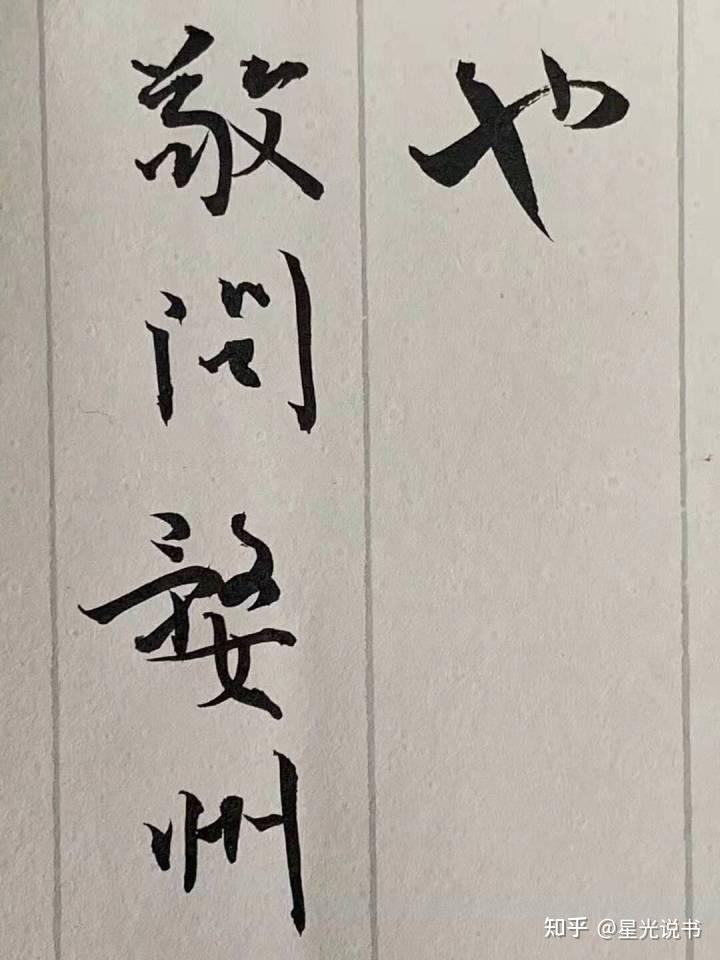 也
敬问婺州
知乎 @星光说书